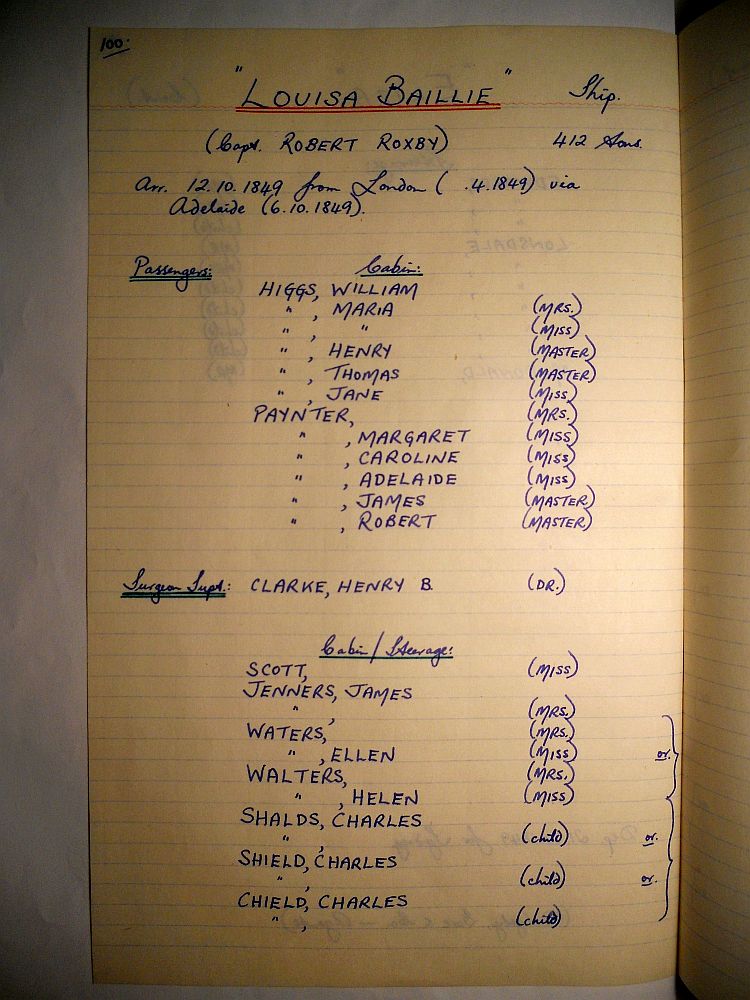 100.
"LOUISA BAILLIE" Ship.
(Capt. ROBERT ROXBY) 412 tons.
Arr. 12.10.1849 from London ( .4.1849) via
Adelaide (6.10.1849).
Passengers: Cabin:
HIGGS, WILLIAM
" , MARIA (MRS.)
" , " (MISS)
" , HENRY (MASTER)
" , THOMAS (MASTER)
" , JANE (MISS)
PAYNTER, (MRS.)
" , MARGARET (MISS)
" , CAROLINE (MISS)
" , ADELAIDE (MISS)
" , JAMES (MASTER)
" , ROBERT (MASTER)
Surgeon Supt.: CLARKE, HENRY B. (DR.)
Cabin/Steerage:
SCOTT, (MISS)
JENNERS, JAMES
" , (MRS.)
WATERS, (MRS.)
" , ELLEN (MISS) or.
WALTERS, (MRS.)
" , HELEN (MISS)
SHALDS, CHARLES
" , (child) or.
SHIELD, CHARLES
" , (child) or.
CHIELD, CHARLES
" , (child)